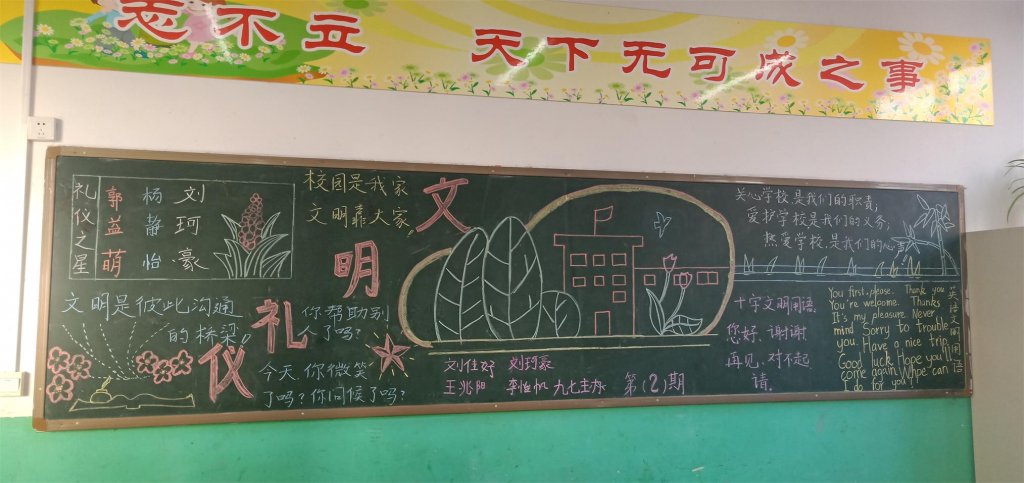 志不立 天下无可成之事
礼仪之星
郭益萌
杨静怡
刘珂豪
校园是我家
文明靠大家。
文明礼仪
文明是彼此沟通
的桥梁。
你帮助别
人了吗?
今天,你微笑
了吗?你问候了吗?
刘佳好 刘珂豪
王兆阳 李怡帆 九七主办 第(2)期
关心学校是我们的职责,
爱护学校是我们的义务,
热爱学校,是我们的心声
十字文明用语。
您好、谢谢
再见、对不起
请。
英语文明用语
You first,please. Thank you
You're welcome. Thanks
It's my pleasure. Never
mind Sorry to trouble
you. Have a nice trip
Good luck. Hope you'll
come again. Whpe can
I do for you?